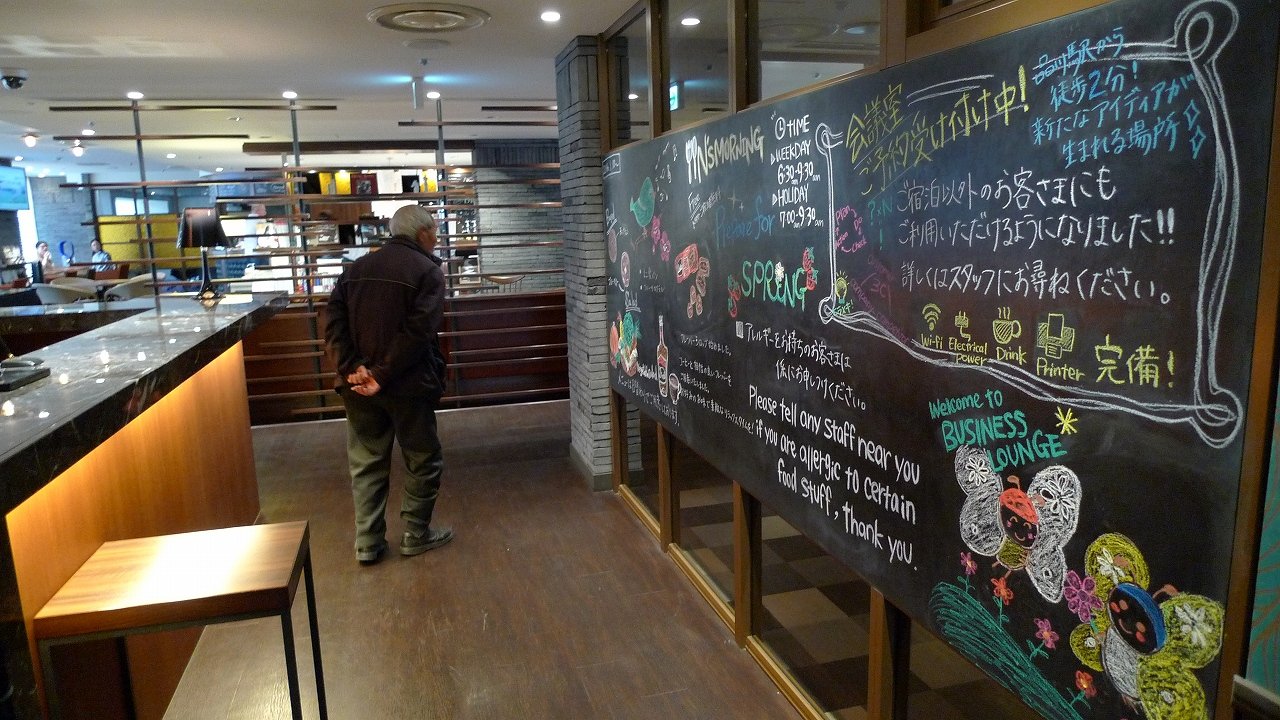 PIN'S MORNING
TIME
WEEKDAY
6:30-9:30am
HOLIDAY
7:00-9:30am
Prepare for
SPRING
アレルギーをお持ちのお客さまは
係にお申しつけください。
Please tell any staff near you
if you are allergic to certain
food stuff, thank you.
会議室
ご予約受け付け中!
品川駅から
徒歩2分!
新たなアイディアが
生まれる場所
ご宿泊以外のお客さまにも
ご利用いただけるようになりました!!
詳しくはスタッフにお尋ねください。
Wi-fi
Electrical
power
Drink
Printer
完備!
Welcome to
BUSINESS
LOUNGE